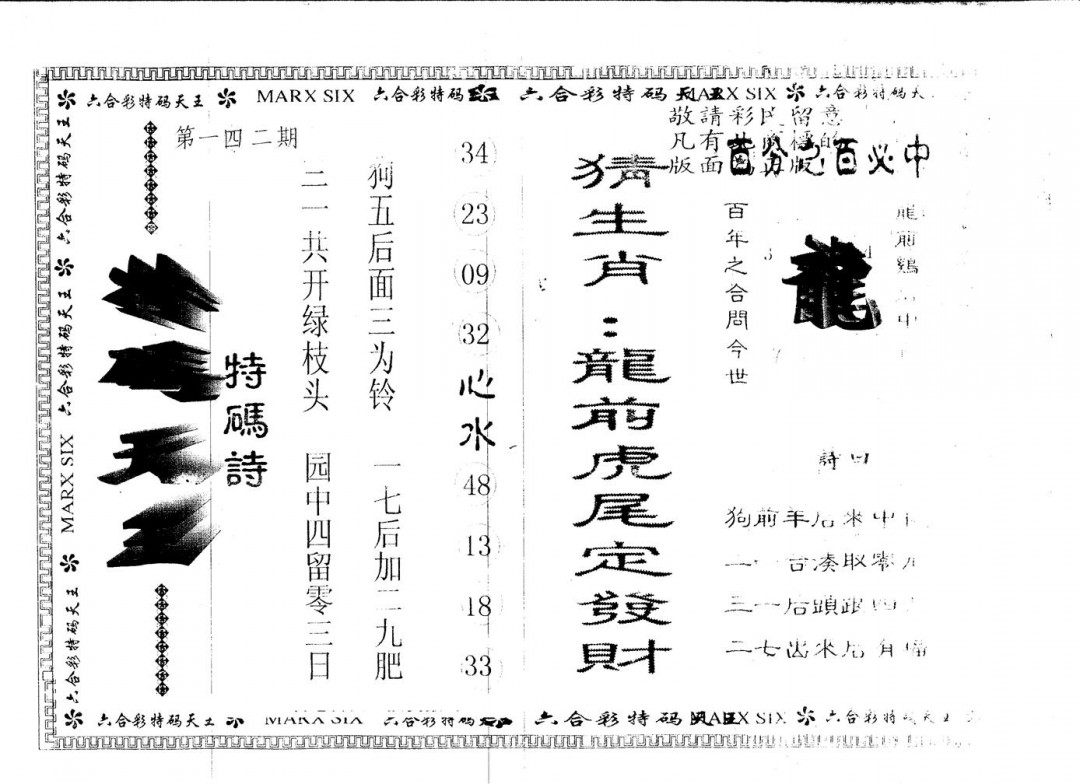 六合彩特码天王 MARX SIX 六合彩特码 六合彩特码天王 MARX SIX 六合彩特码天
敬請彩民留意
凡有
版面
百分之百必中
第一四二期
特碼詩
二一共开绿枝头 园中四留零三日
狗五后面三为铃 一七后加二九肥
34
23
09
32
心水
48
13
18
33
猜生肖：龍前虎尾定發財
百年之合問今世
龍
龍前鷄
中
詩曰
狗前羊后来中
二一合湊取零
三一后頭跟四
二七出来后有
六合彩特码天王
六合彩特码天王
六合彩特码天王
MARX SIX
六合彩特码天王
六合彩特码天王 MARX SIX 六合彩特码 六合彩特码天王 MARX SIX 六合彩特码天